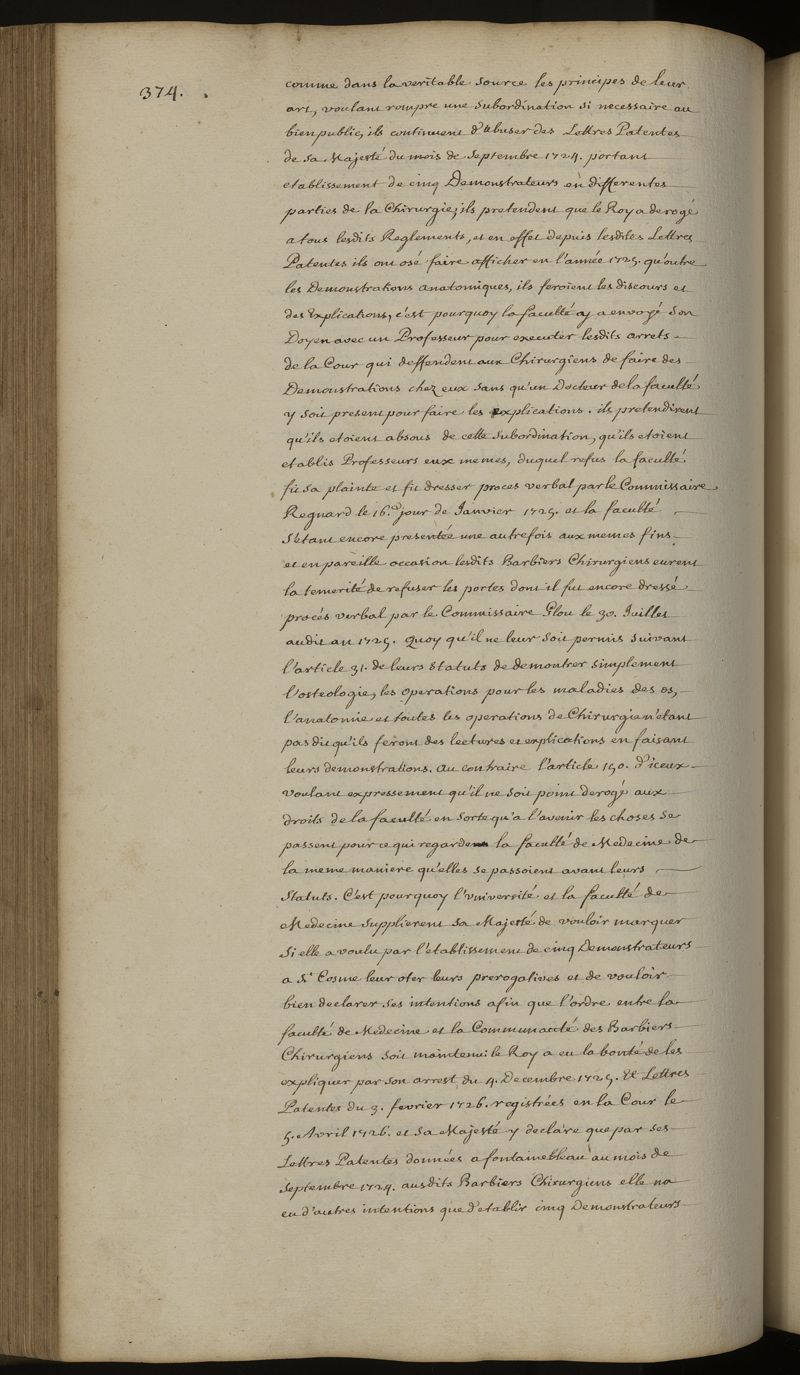 374.
comme dans la veritable source les principes de leur
art, voulant rompre une subordination si necessaire au
bien public, ils continuent d'abuser des Lettres Patentes
de Sa Majesté du mois de Septembre 1724. portant
etablissement de cinq Demonstrateurs en differentes
parties de la Chirurgie; ils pretendent que le Roy a derogé
a tous lesdits Reglements, et en effet depuis lesdites Lettres
Patentes ils ont osé faire afficher en l'année 1725. qu'outre
les Demonstrations anatomiques, ils feroient les discours et
des Explications, c'est pourquoy la faculté a envoyé son
Doyen avec un Professeur pour executer lesdits arrets
de la Cour qui deffendent aux Chirurgiens de faire des
Demonstrations chez eux sans qu'un Docteur de la faculté
y soit present pour faire les explications. ils pretendirent
qu'ils etoient absous de cette subordination, qu'ils etoient
etablis Professeurs eux memes, duquel refus la faculté
fit sa plainte et fit dresser proces verbal par le Commissaire
Regnard le 16.e jour de Janvier 1725. et la faculté
s'etant encore presentée une autrefois aux memes fins
et en pareille occasion lesdits Barbiers Chirurgiens eurent
la temerité de refuser les portes dont il fut encore dressé
procés verbal par le Commissaire Glou le 30. Juillet
audit an 1725. Quoy qu'il ne leur soit permis suivant
l'article 31. de leurs statuts de demontrer simplement
l'osteologie, les operations pour les maladies des os,
l'anatomie et toutes les operations de Chirurgie n'etant
pas dit qu'ils feront des lectures et explications en faisant
leurs demonstrations. au contraire l'article 150. d'iceux
voulant expressement qu'il ne soit point derogé aux
droits de la faculté en sorte qu'a l'avenir les choses se
passent pour ce qui regarde la faculté de Medecine de
la meme maniere qu'elles se passoient avant leurs
Statuts. C'est pourquoy l'université et la faculté de
Medecine supplierent Sa Majesté de vouloir marquer
si elle a voulu par l'etablissement de cinq Demonstrateurs
a St Cosme leur oter leurs prerogatives et de vouloir
bien declarer ses intentions afin que l'ordre entre la
faculté de Medecine et la Communauté des Barbiers
Chirurgiens soit maintenu: le Roy a eu la bonté de les
expliquer par son arrest du 4. Decembre 1725. et Lettres
Patentes du 3. fevrier 1726. registrées en la Cour le
5. Avril 1726. et Sa Majesté y declare que par ses
Lettres Patentes données a fontainebleau au mois de
Septembre 1724. ausdits Barbiers Chirurgiens elle na
eu d'autres intentions que d'etablir cinq Demonstrateurs